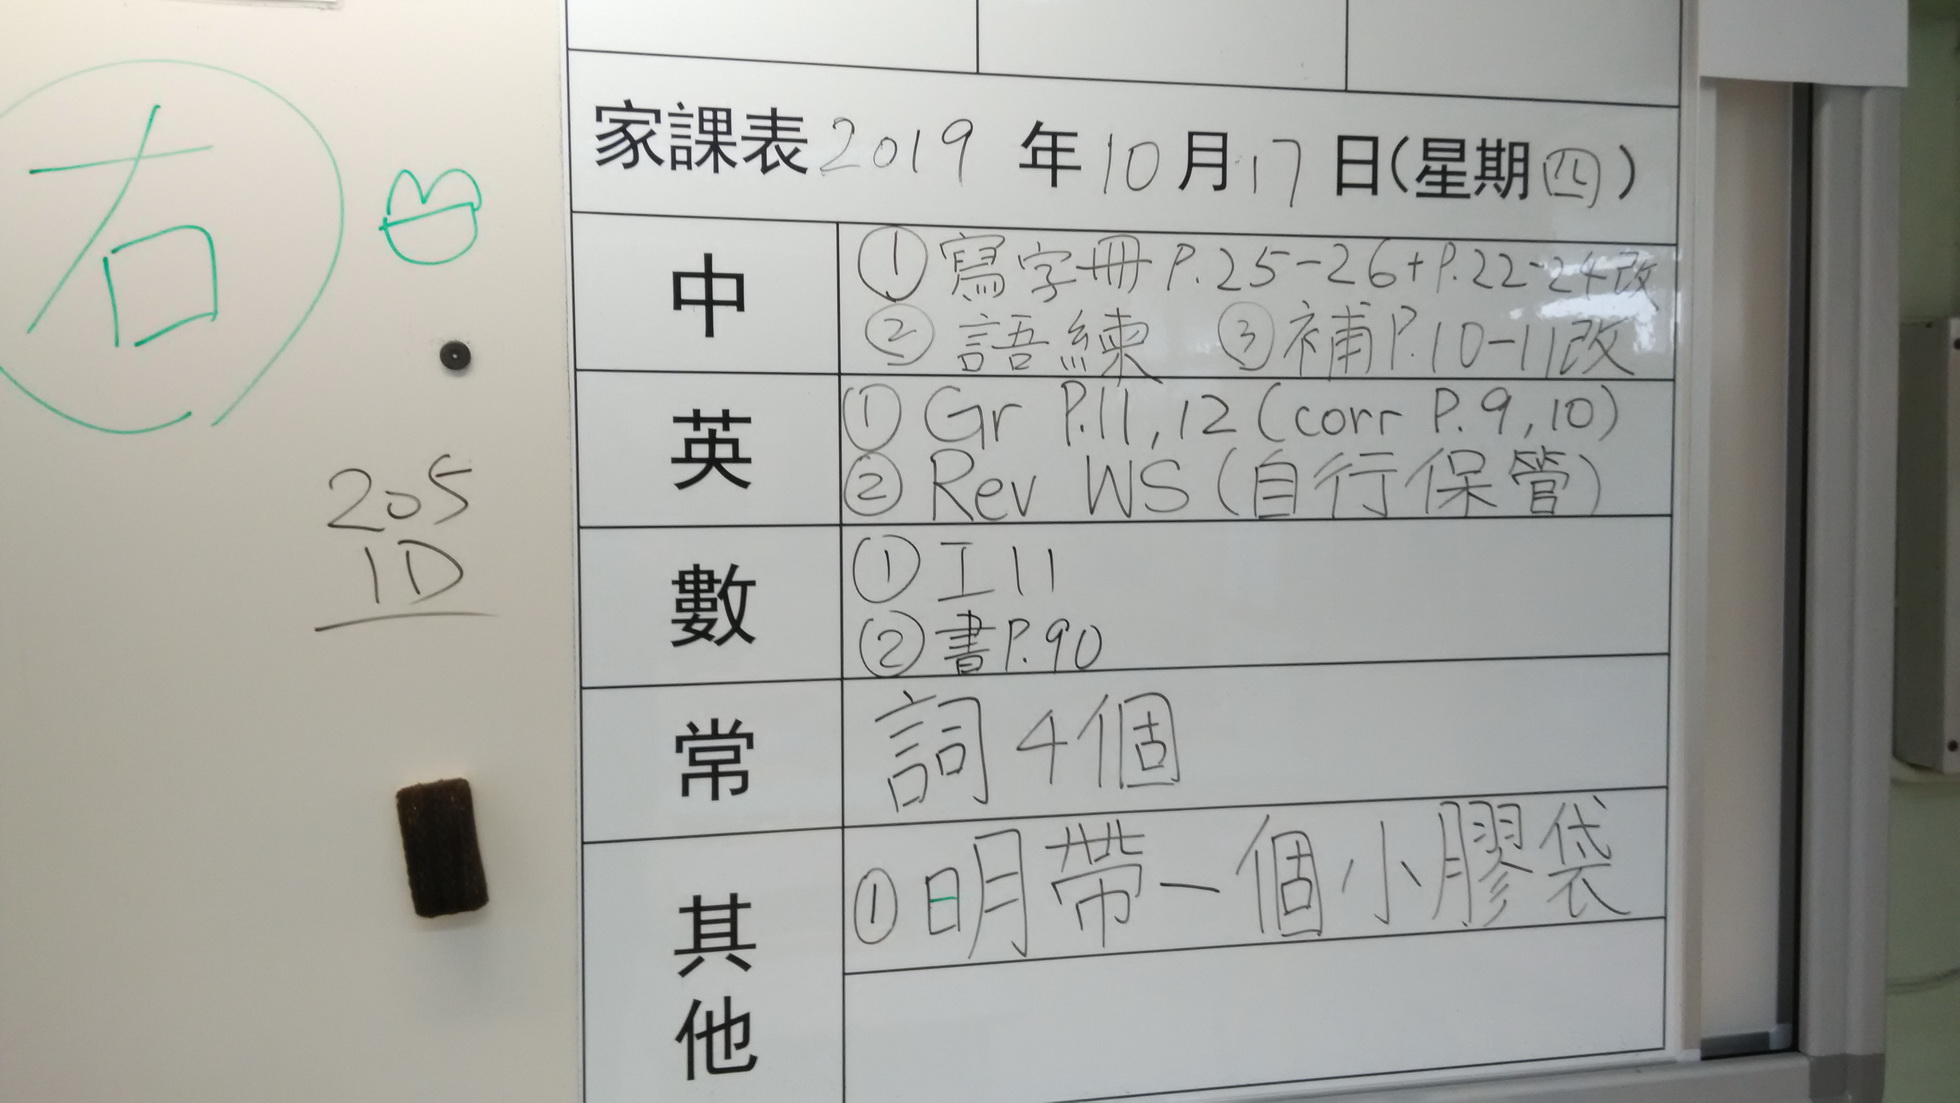 右
205
1D
家課表 2019 年 10 月 17 日(星期四)
中
① 寫字冊 P.25-26+P.22-24改
② 語練 ③ 補P.10-11改
英
① Gr P.11,12 (corr P.9,10)
② Rev WS (自行保管)
數
① 工11
② 書P.90
常
詞4個
其他
① 明帶一個小膠袋